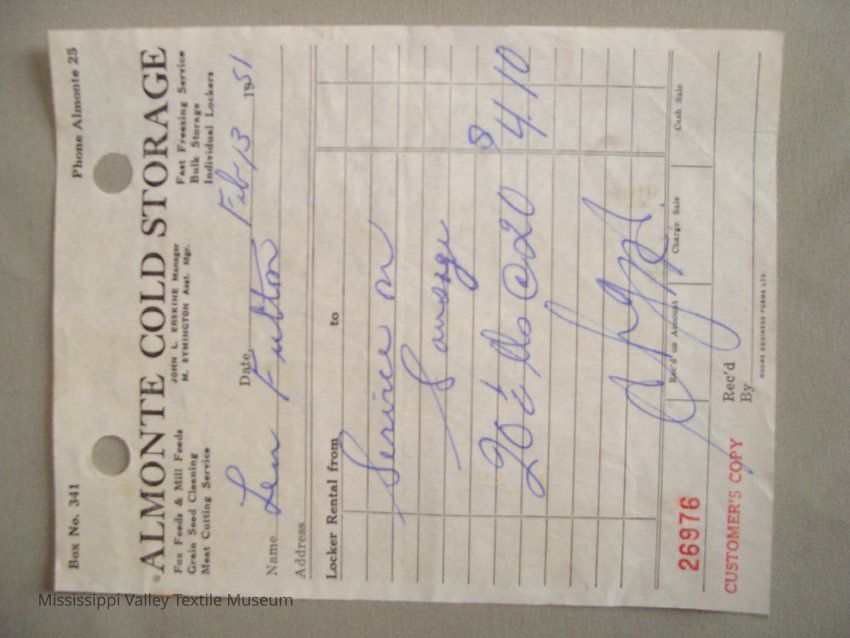 Box No. 341 Phone Almonte 25
ALMONTE COLD STORAGE
Fox Feeds & Mill Feeds JOHN L. ERSKINE Manager Fast Freezing Service
Grain Seed Cleaning M. SYMINGTON Asst. Mgr. Bulk Storage
Meat Cutting Service Individual Lockers
Date Feb 13 1951
Name Len Fulton
Address
Locker Rental from to
Service on
Sausage
20½ lbs @ 20 $ 4 10
Rec'd on Account Charge Sale Cash Sale
26976
Rec'd
CUSTOMER'S COPY By
MOORE BUSINESS FORMS LTD.
Mississippi Valley Textile Museum